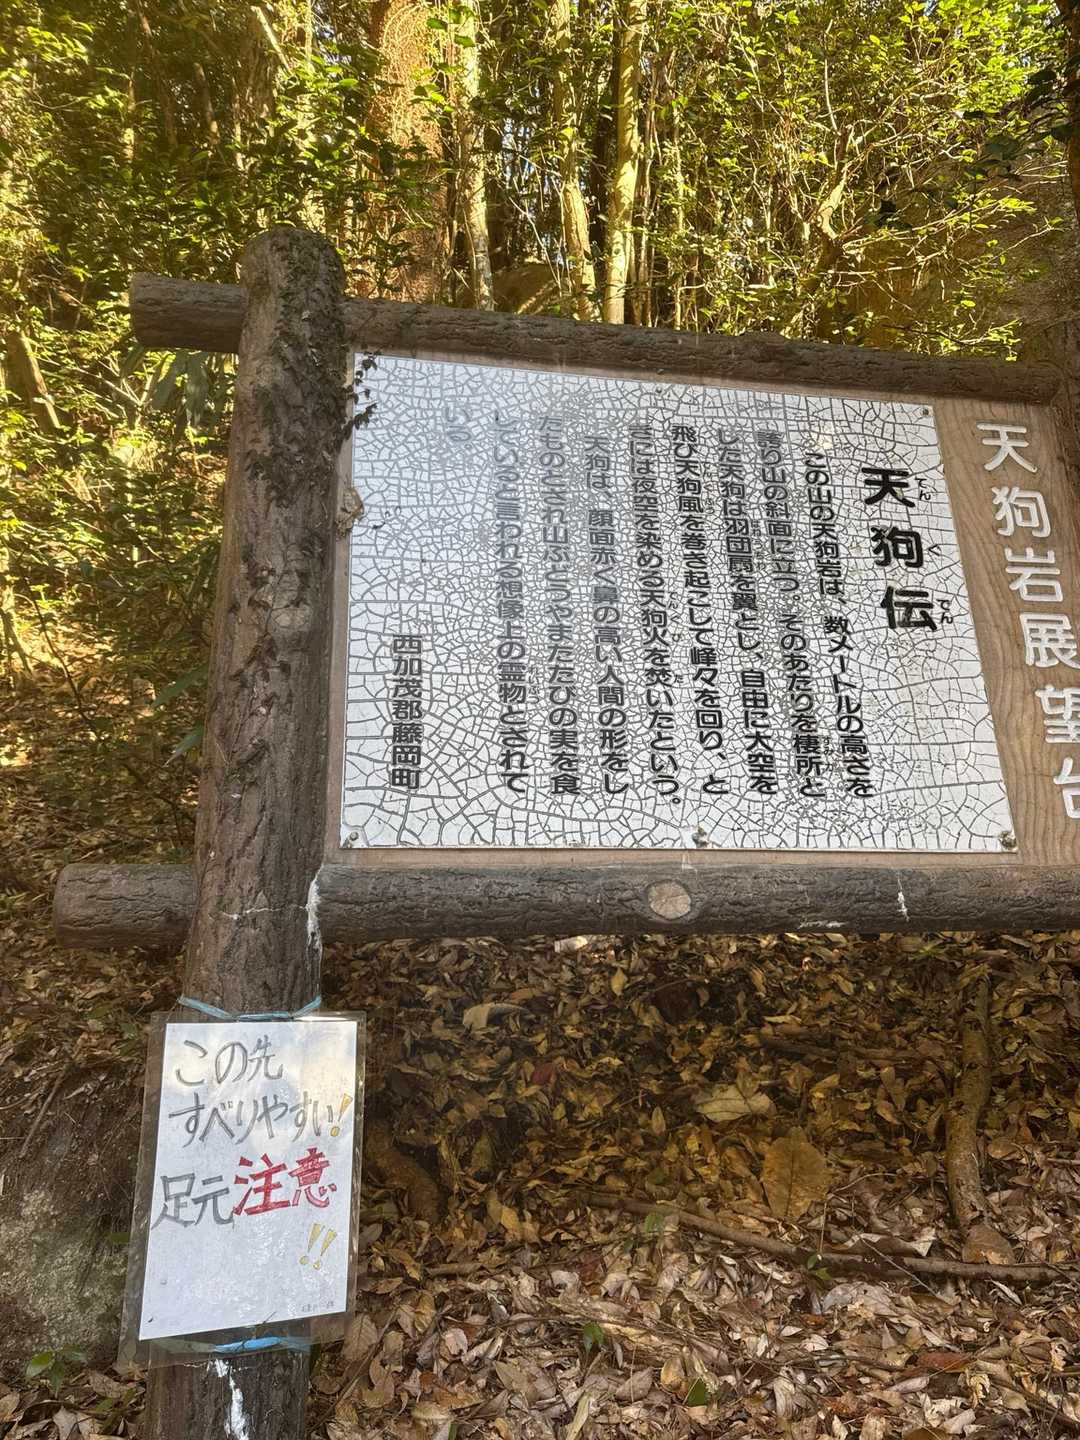 天狗岩展望台
天狗伝
てんぐでん
この山の天狗岩は、数メートルの高さを
誇り山の斜面に立つ。そのあたりを棲所と
した天狗は羽団扇を翼とし、自由に大空を
飛び天狗風を巻き起こして峰々を回り、と
きには夜空を染める天狗火を焚いたという。
天狗は、顔面赤く鼻の高い人間の形をし
たものとされ山ぶどうやまたたびの実を食
していると言われる想像上の霊物とされて
いる。
西加茂郡藤岡町
この先
すべりやすい!
足元注意
!!